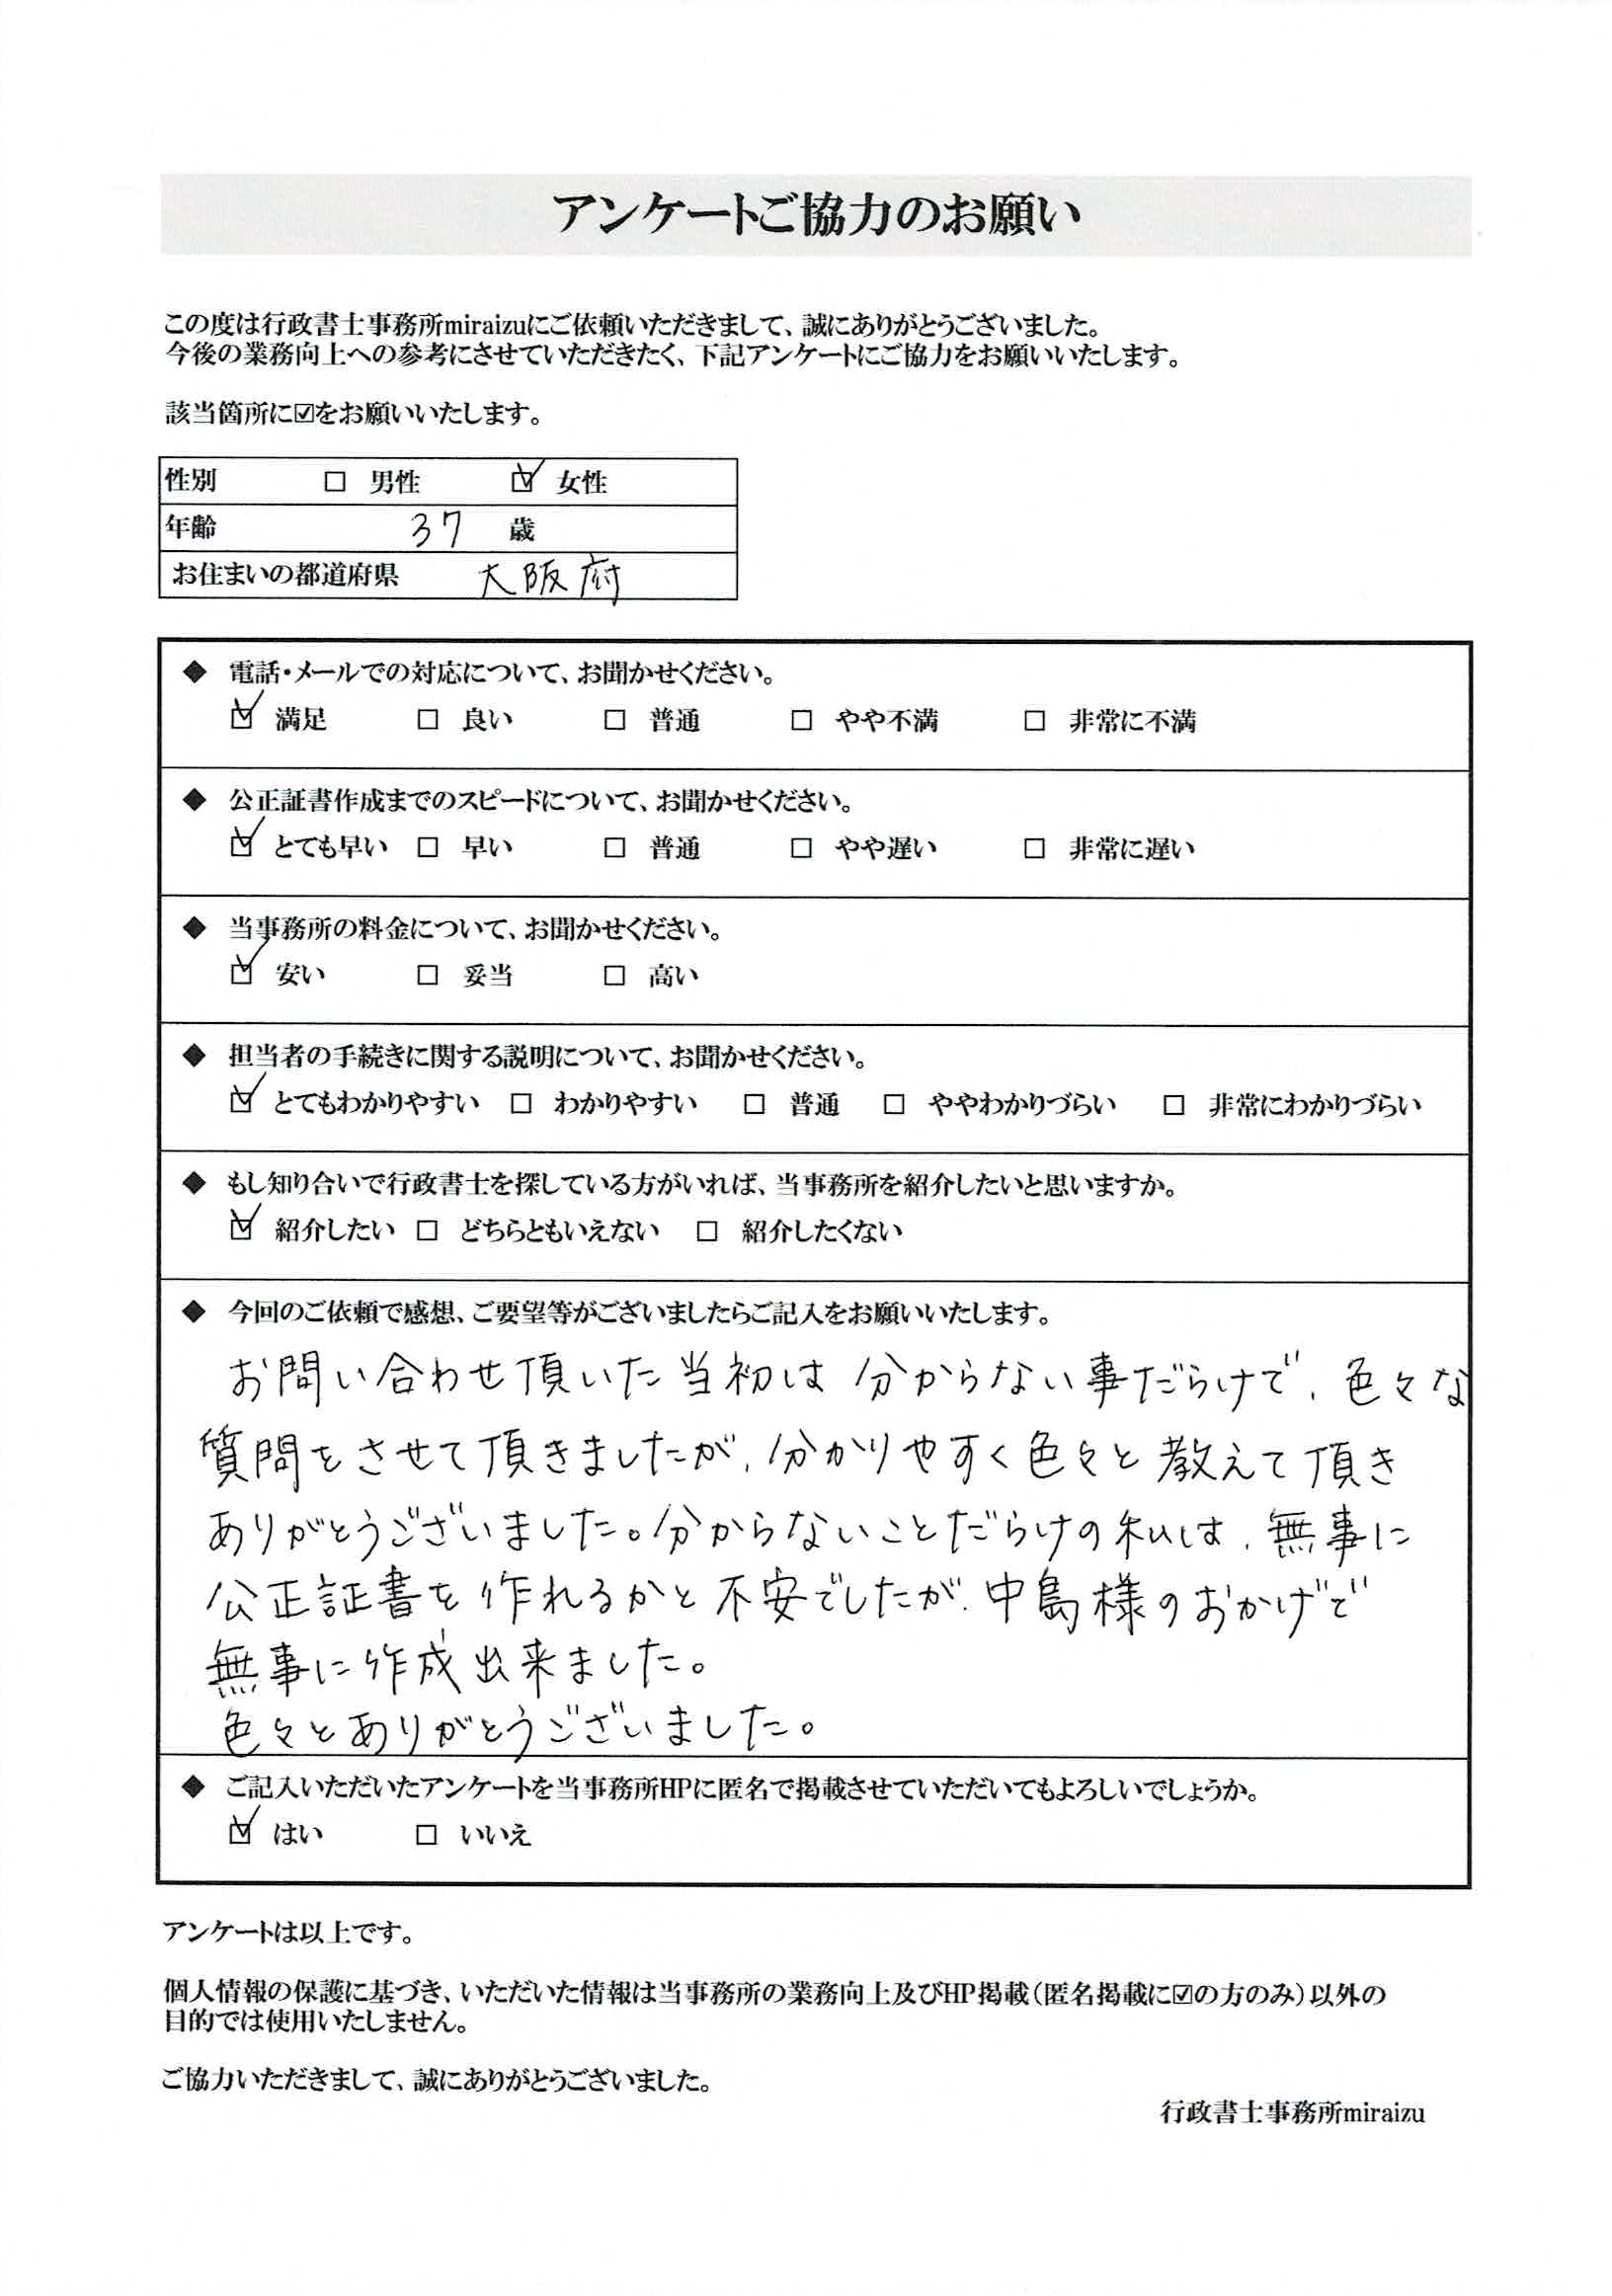 アンケートご協力のお願い
この度は行政書士事務所miraizuにご依頼いただきまして、誠にありがとうございました。
今後の業務向上への参考にさせていただきたく、下記アンケートにご協力をお願いいたします。
該当箇所に☑をお願いいたします。
性別 □ 男性 ☑ 女性
年齢 37 歳
お住まいの都道府県 大阪府
◆ 電話・メールでの対応について、お聞かせください。
☑ 満足 □ 良い □ 普通 □ やや不満 □ 非常に不満
◆ 公正証書作成までのスピードについて、お聞かせください。
☑ とても早い □ 早い □ 普通 □ やや遅い □ 非常に遅い
◆ 当事務所の料金について、お聞かせください。
☑ 安い □ 妥当 □ 高い
◆ 担当者の手続きに関する説明について、お聞かせください。
☑ とてもわかりやすい □ わかりやすい □ 普通 □ ややわかりづらい □ 非常にわかりづらい
◆ もし知り合いで行政書士を探している方がいれば、当事務所を紹介したいと思いますか。
☑ 紹介したい □ どちらともいえない □ 紹介したくない
◆ 今回のご依頼で感想、ご要望等がございましたらご記入をお願いいたします。
お問い合わせ頂いた当初は分からない事だらけで、色々な
質問をさせて頂きましたが、分かりやすく色々と教えて頂き
ありがとうございました。分からないことだらけの私は、無事に
公正証書を作れるかと不安でしたが、中島様のおかげで
無事に作成出来ました。
色々とありがとうございました。
◆ ご記入いただいたアンケートを当事務所HPに匿名で掲載させていただいてもよろしいでしょうか。
☑ はい □ いいえ
アンケートは以上です。
個人情報の保護に基づき、いただいた情報は当事務所の業務向上及びHP掲載（匿名掲載に☑の方のみ）以外の
目的では使用いたしません。
ご協力いただきまして、誠にありがとうございました。
行政書士事務所miraizu